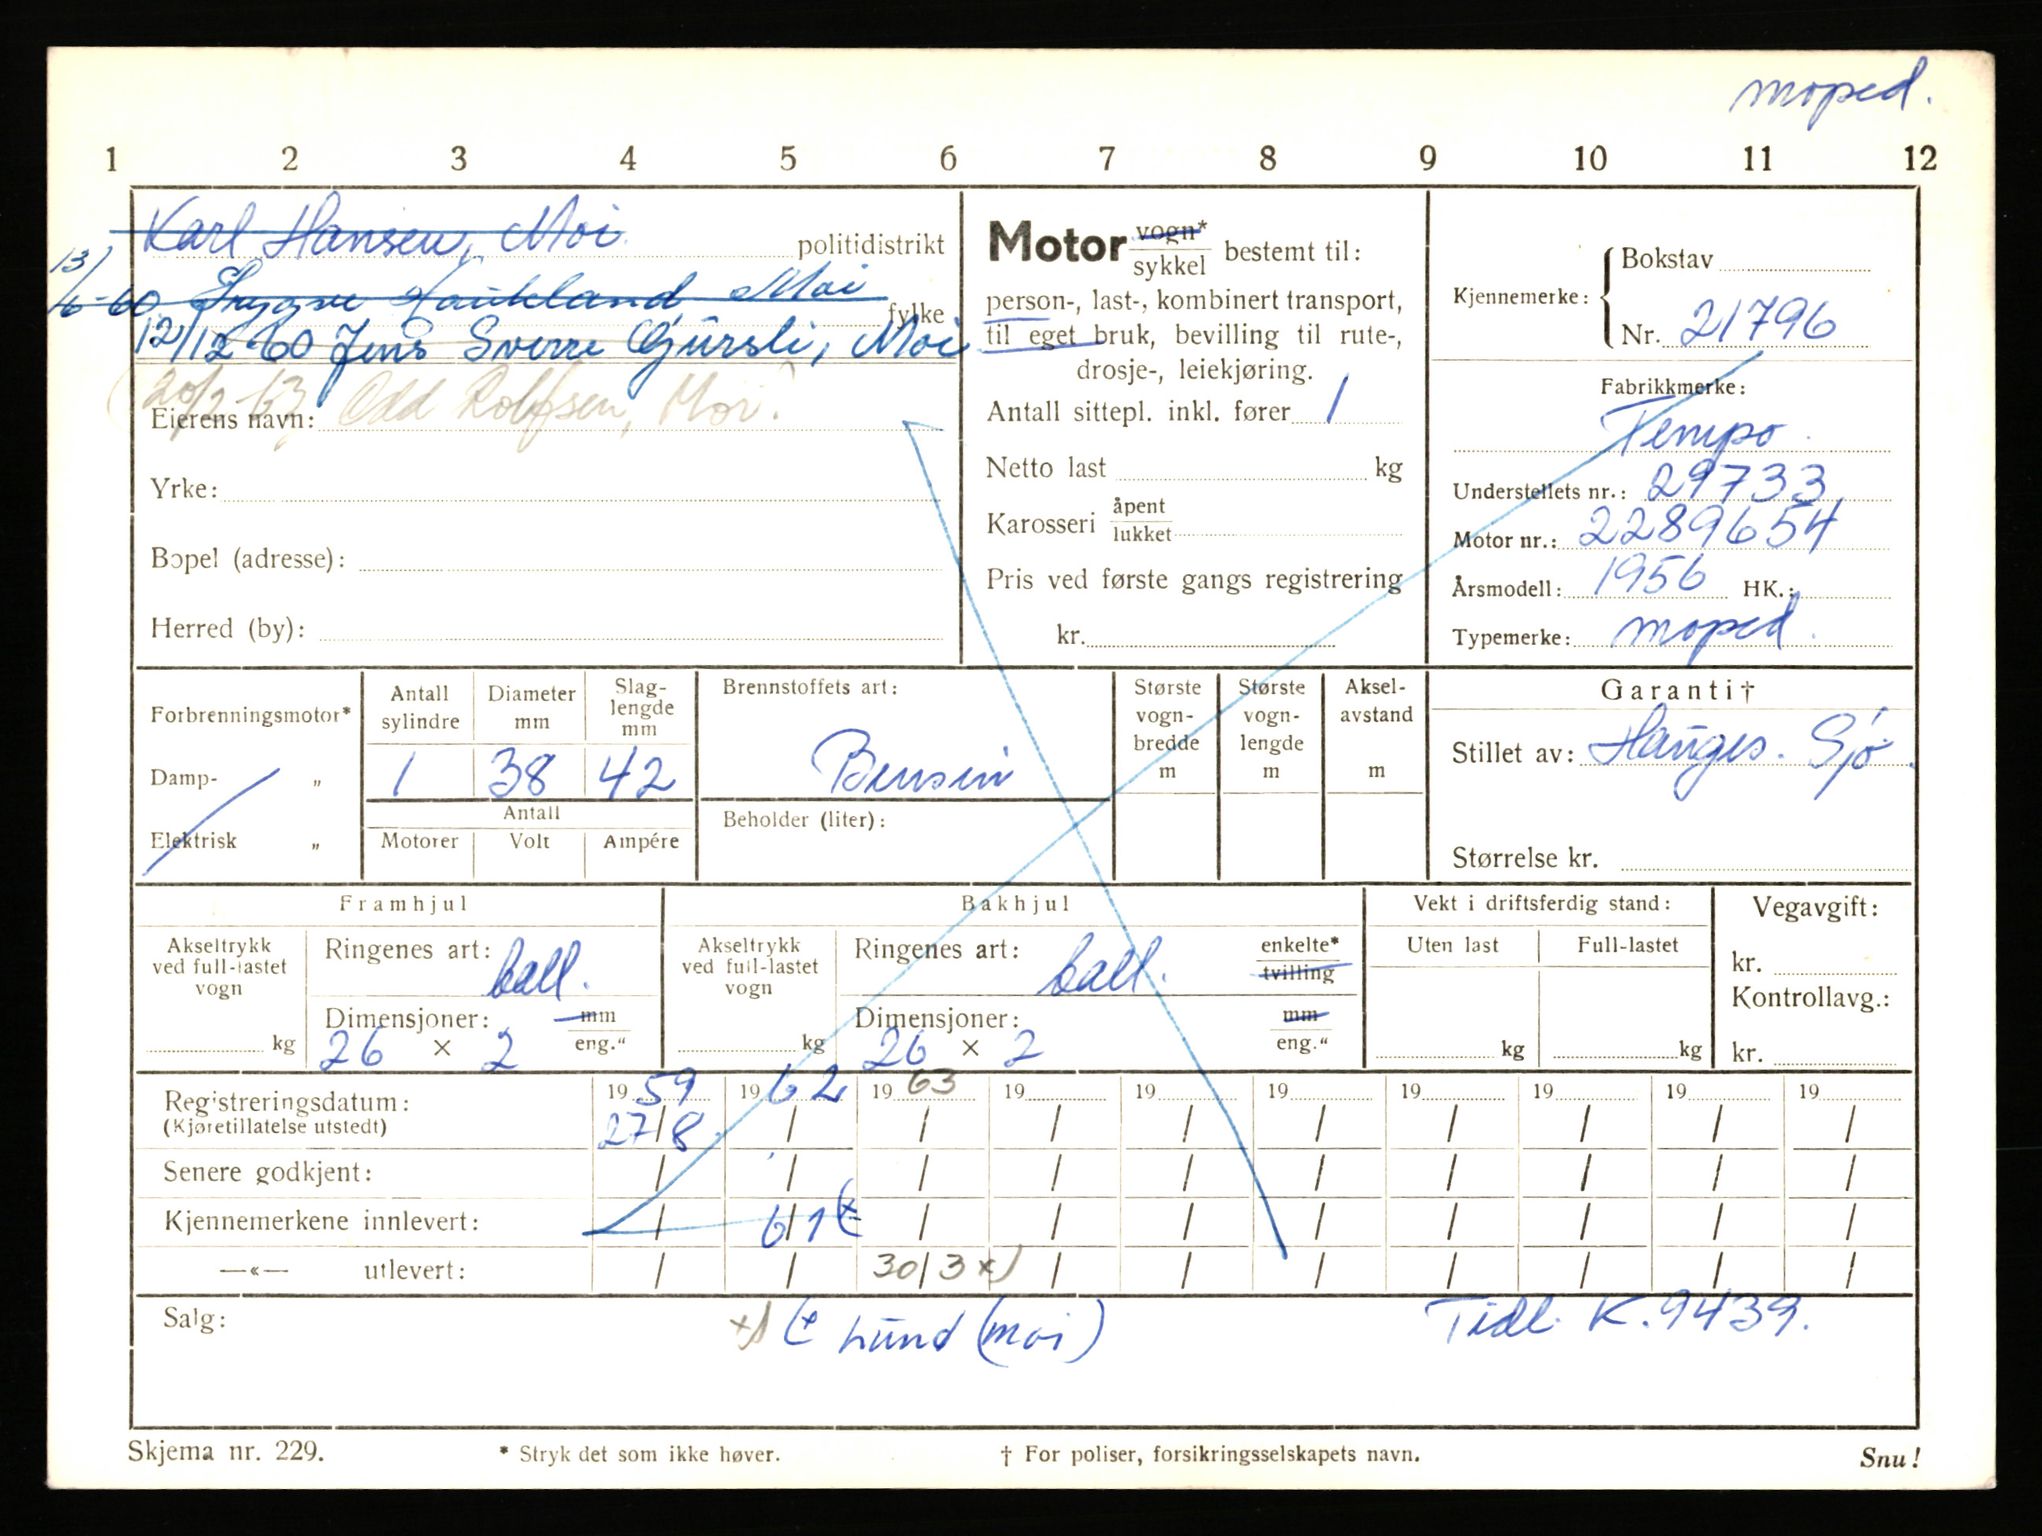 moped.
1 2 3 4 5 6 7 8 9 10 11 12
Karl Hansen, Moi politidistrikt
13/6-60 Trygve Haukland Moi fylke
12/12-60 Jens Sverre Gursli, Moi
20/2-63 Odd Rolfsen, Moi.
Eierens navn:
Yrke:
Bopel (adresse):
Herred (by):
Motor vogn*
sykkel bestemt til:
person-, last-, kombinert transport,
til eget bruk, bevilling til rute-,
drosje-, leiekjøring.
Antall sittepl. inkl. fører 1
Netto last kg
Karosseri åpent
lukket
Pris ved første gangs registrering
kr.
Kjennemerke: Bokstav
Nr. 21796
Fabrikkmerke:
Tempo
Understellets nr.: 29733
Motor nr.: 2289654
Årsmodell: 1956 HK.:
Typemerke: moped.
Forbrenningsmotor*
Damp- „
Elektrisk „
Antall sylindre
Diameter mm
Slag-lengde mm
1 38 42
Antall
Motorer Volt Ampére
Brennstoffets art:
Bensin
Beholder (liter):
Største vogn-bredde m
Største vogn-lengde m
Aksel-avstand m
Garanti†
Stillet av: Hauges. Sjø.
Størrelse kr.
Framhjul
Akseltrykk
ved full-lastet
vogn
kg
Ringenes art:
ball.
Dimensjoner: mm
26 × 2 eng."
Bakhjul
Akseltrykk
ved full-lastet
vogn
kg
Ringenes art: enkelte*
ball. tvilling
Dimensjoner: mm
26 × 2 eng."
Vekt i driftsferdig stand:
Uten last Full-lastet
kg kg
Vegavgift:
kr.
Kontrollavg.:
kr.
Registreringsdatum: 19 59 19 62 19 63 19 19 19 19 19 19 19
(Kjøretillatelse utstedt) 27/8 / / / / / / / / /
Senere godkjent: / / / / / / / / / /
Kjennemerkene innlevert: / 6/1 (x / / / / / / / /
—«— utlevert: / / 30/3 x) / / / / / / /
Salg: x) (x Lund (Moi) Tidl. K. 9439.
Skjema nr. 229. * Stryk det som ikke høver. † For poliser, forsikringsselskapets navn. Snu!